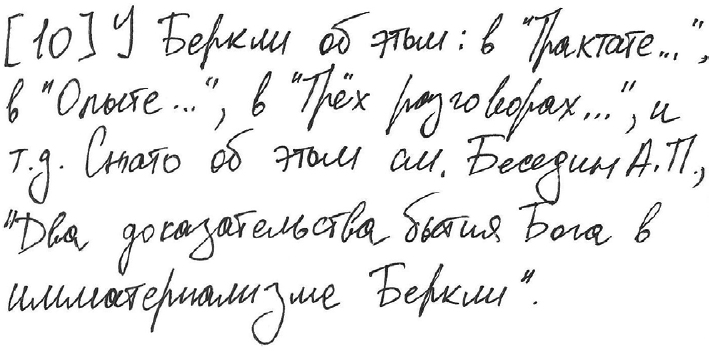 [10] У Беркли об этом: в "Трактате...",
в "Опыте...", в "Трёх разговорах...", и
т.д. Сжато об этом см. Беседин А.П.,
"Два доказательства бытия Бога в
имматериализме Беркли".